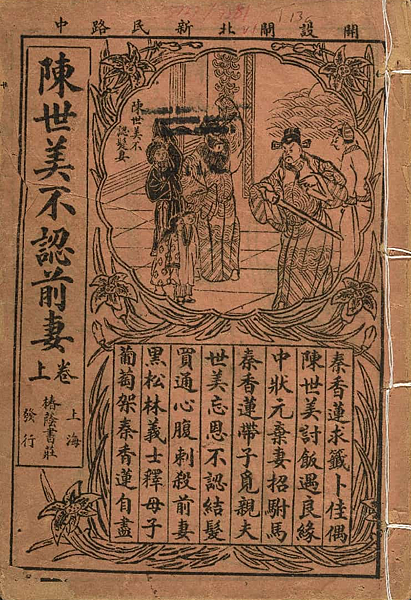 開設閘北新民路中
陳世美不
認髮妻
秦香蓮求籤卜佳偶
陳世美討飯遇良緣
中狀元棄妻招駙馬
秦香蓮帶子覓親夫
世美忘恩不認結髮
買通心腹刺殺前妻
黑松林義士釋母子
葡萄架秦香蓮自盡
陳世美不認前妻
卷上
上海
椿蔭書莊
發行